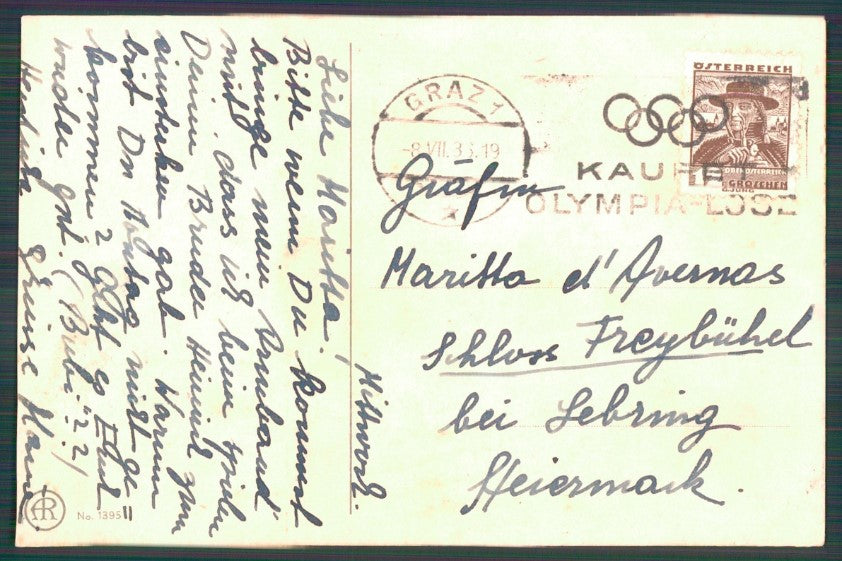 Mittwoch.
Liebe Maritta!
Bitte wenn Du kommst
bringe mein Armband
mit, dass ich beim spielen
Deinem Bruder Heinrich zum
einstecken gab. Warum
bist Du Montag nicht ge
kommen? Glat es Ehch
wieder gut. (Bubi"??)
Herzliche Grüsse Hansi
AR
No. 1395 II
GRAZ 1
-8.VII.36.19
KAUFET
OLYMPIA-LOSE
ÖSTERREICH
OBERÖSTERREICH
GROSCHEN
Gräfin
Maritta d'Avernas
Schloss Freybühel
bei Lebring
Steiermark.